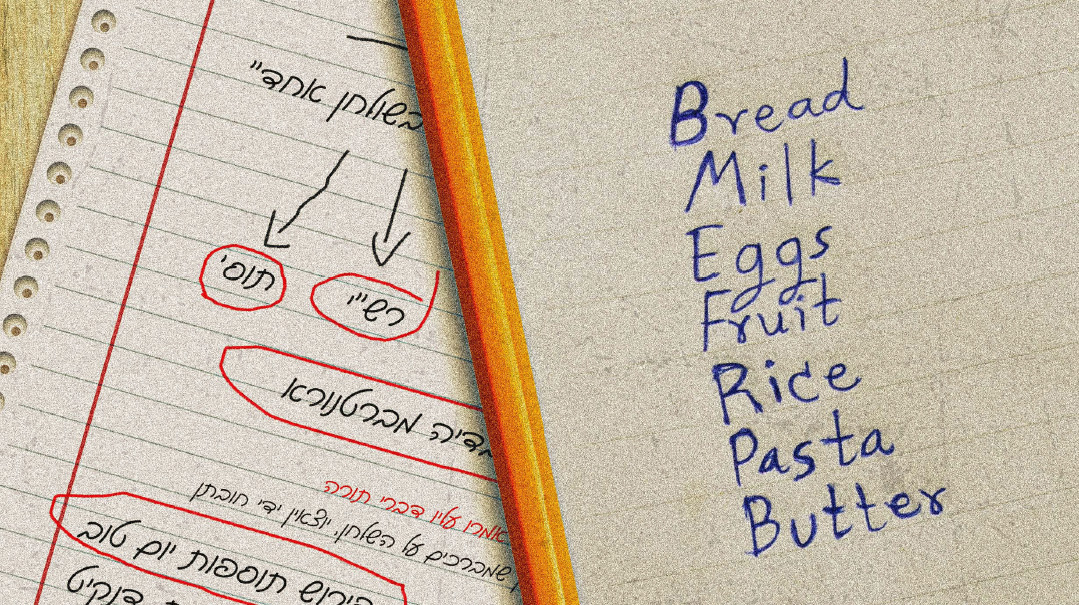 בשולחן אחד"
תוס'
רש"י
מברטנורא
אמרו עליו דברי תורה
שמברכים על השלחן, יוצאין ידי חובתן
פירוש תוספות יום טוב
Bread
Milk
Eggs
Fruit
Rice
Pasta
Butter